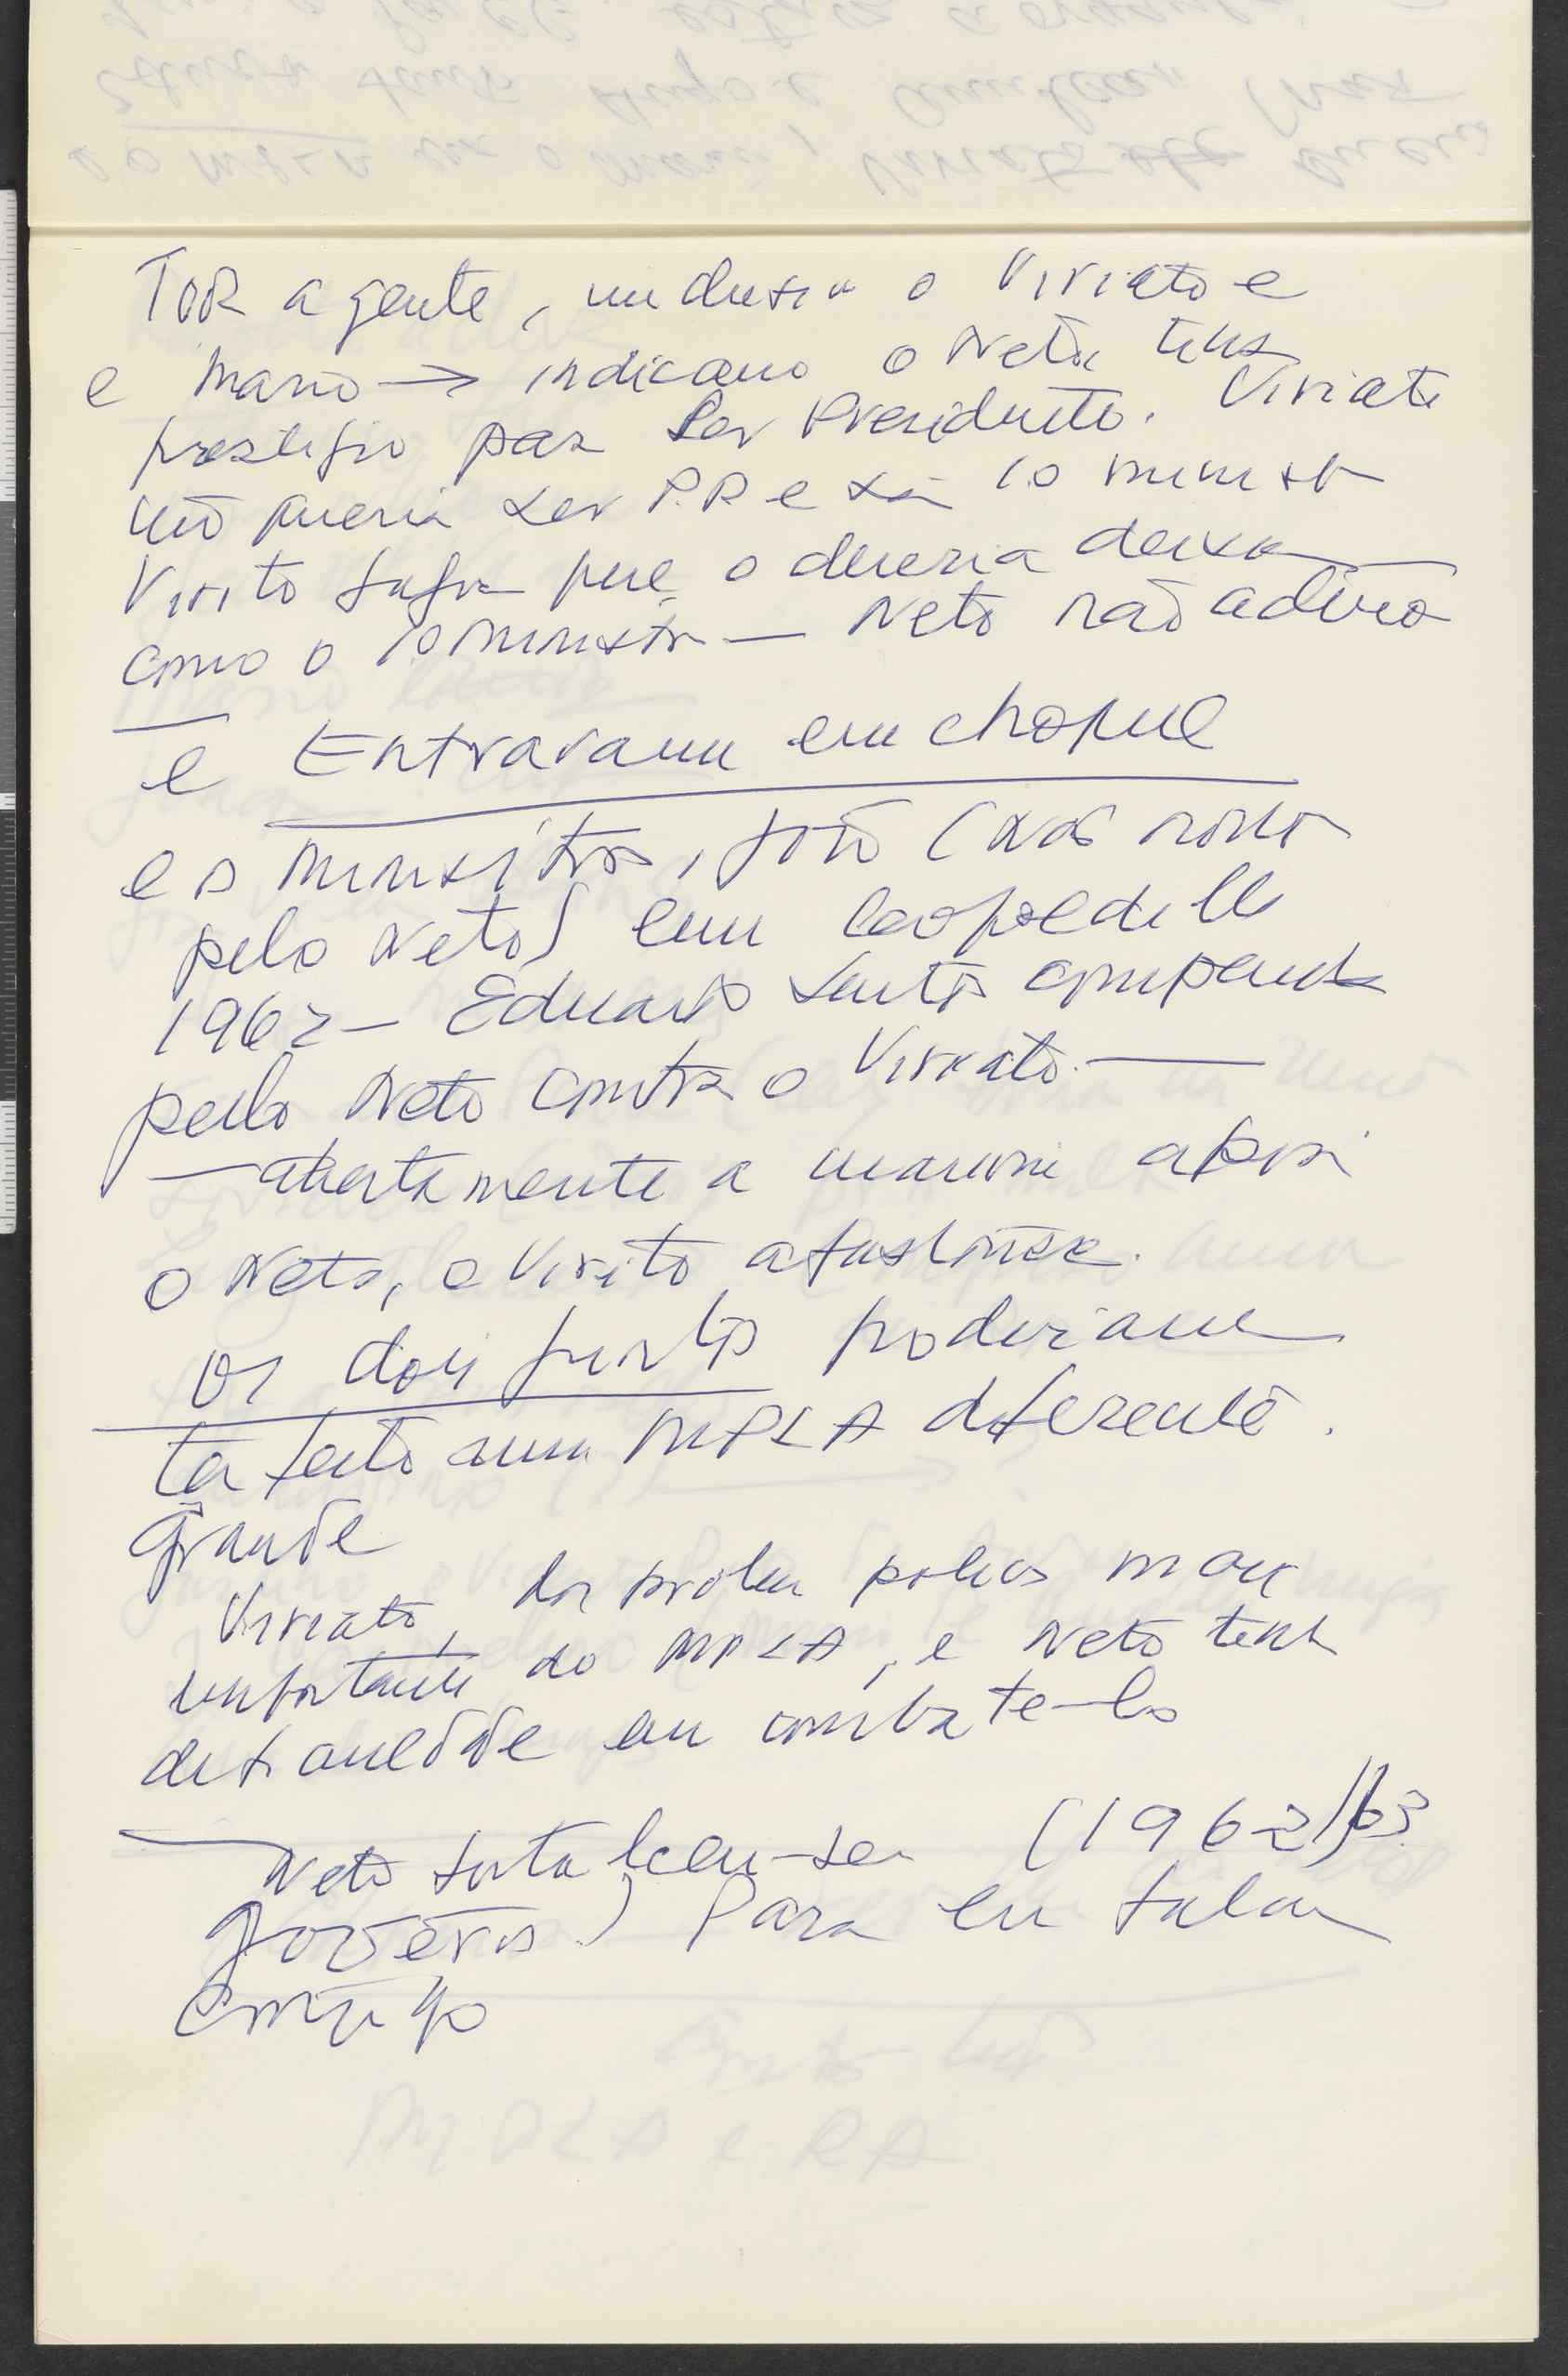 Toda a gente, inclusiva o Viriato e
e Mario → indicamo o Neto tinha
prestigio para ser Presidente. Viriato
não queria ser P.R e sim 1o minist
Virito que o deveria deixa
como o 1o Ministr — Neto não adira
e Entraram em choque
e o Ministros, João (
pelo Neto) em Leopoldville
1962 — Eduardo Santos
pelo Neto contra o Viriato —
— abertamente a maioria apoi
o Neto, o Virito afastou-se.
Os dois juntos poderiam
ter feito um MPLA diferente.
Grande
Viriato, dos proble polics mais
importante do MPLA, e Neto tenh
em combate-lo
Neto fortaleceu-se (1962)/63
governo) Para eu falar
comigo